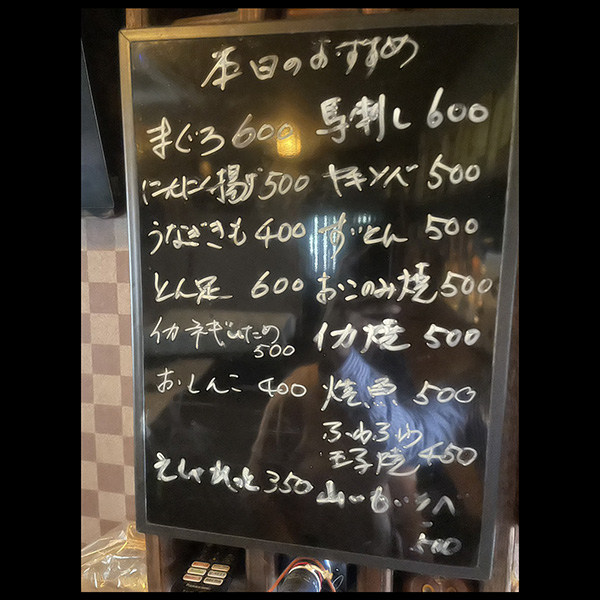 本日のおすすめ
まぐろ 600
にんにく揚げ 500
うなぎきも 400
とん足 600
イカネギいため
500
おしんこ 400
えしゃれっと 350
馬刺し 600
500
500
おこのみ焼 500
イカ焼 500
焼魚 500
ふわふわ
玉子焼 450
山いも
500